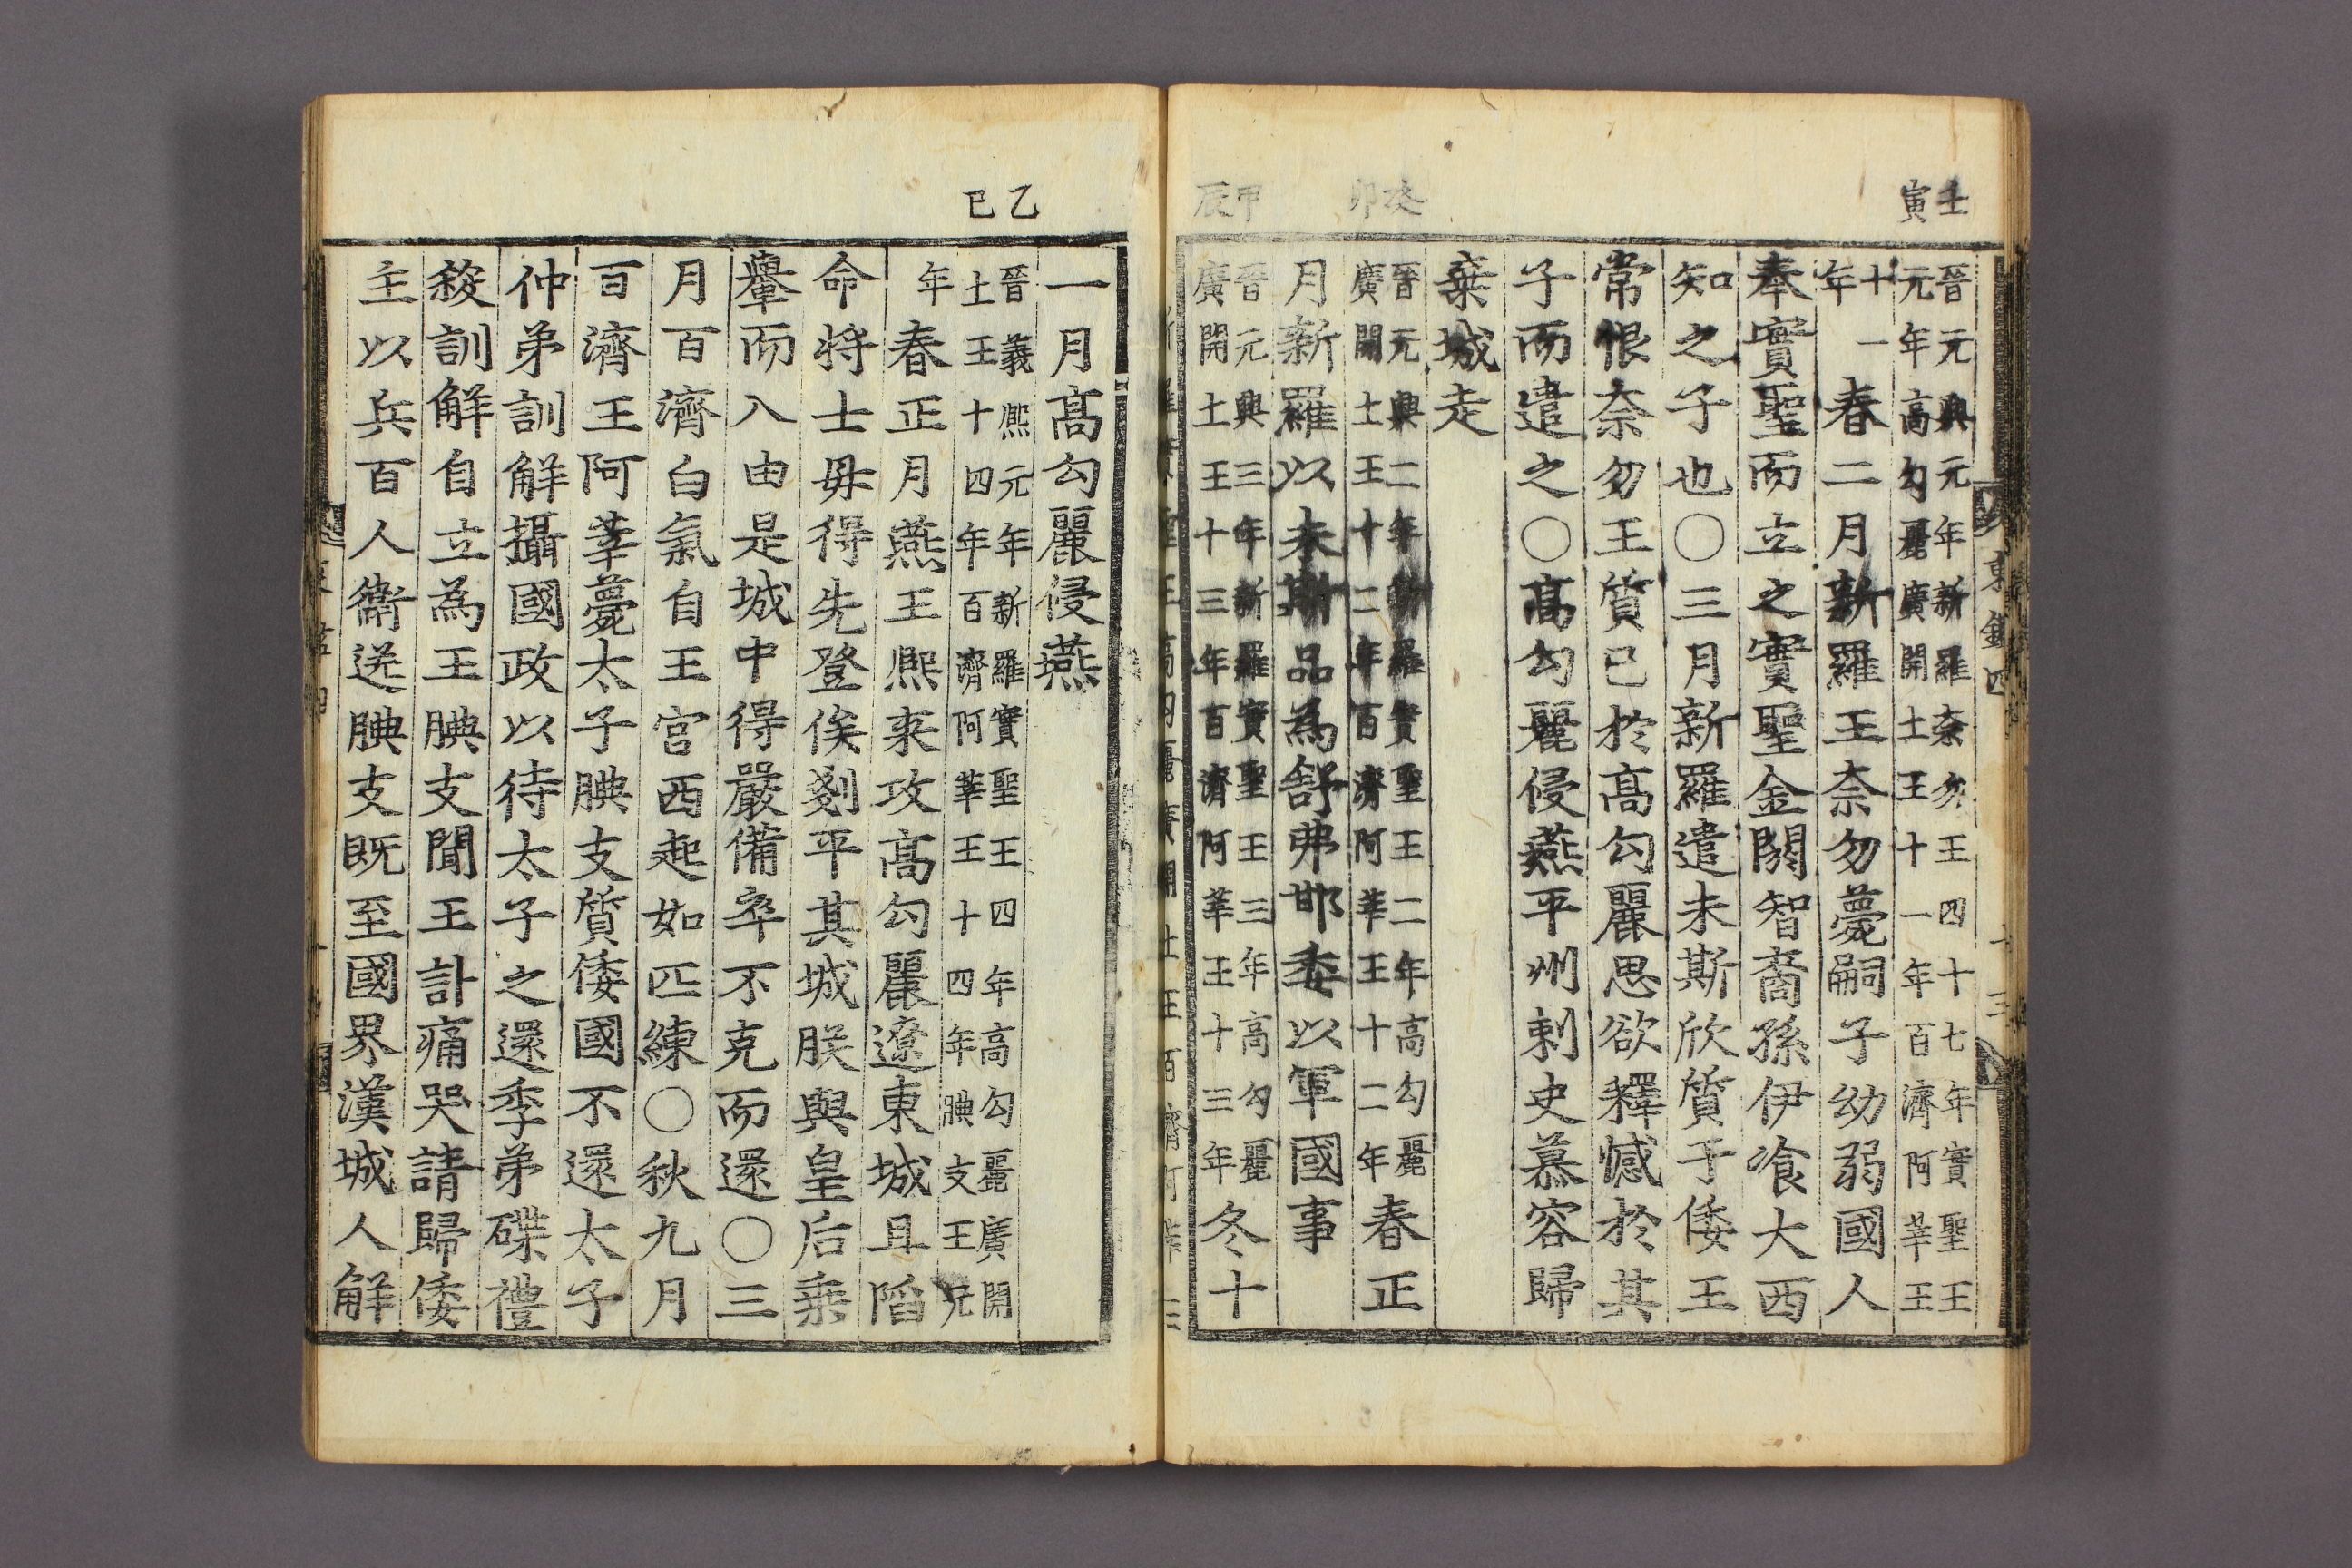 壬寅
晉元興元年新羅奈勿王四十七年實聖王
元年高勾麗廣開土王十一年百濟阿莘王
十一年
春二月新羅王奈勿薨嗣子幼弱國人
奉實聖而立之實聖金閼智裔孫伊飡大西
知之子也○三月新羅遣未斯欣質于倭王
常恨奈勿王質已於高勾麗思欲釋憾於其
子而遣之○高勾麗侵燕平州刺史慕容歸
棄城走
癸卯
晉元興二年新羅實聖王二年高勾麗
廣開土王十二年百濟阿莘王十二年
春正
月新羅以未斯品為舒弗邯委以軍國事
甲辰
晉元興三年新羅實聖王三年高勾麗
廣開土王十三年百濟阿莘王十三年
冬十
東鑑四
十三
一月高勾麗侵燕
乙巳
晉義熙元年新羅實聖王四年高勾麗廣開
土王十四年百濟阿莘王十四年腆支王元
年
春正月燕王熈來攻高勾麗遼東城且陷
命將士毋得先登俟剗平其城朕與皇后乗
轝而入由是城中得嚴備卒不克而還○三
月百濟白氣自王宮西起如匹練○秋九月
百濟王阿莘薨太子腆支質倭國不還太子
仲弟訓解攝國政以待太子之還季弟碟禮
殺訓解自立為王腆支聞王訃痛哭請歸倭
主以兵百人衛送腆支既至國界漢城人解